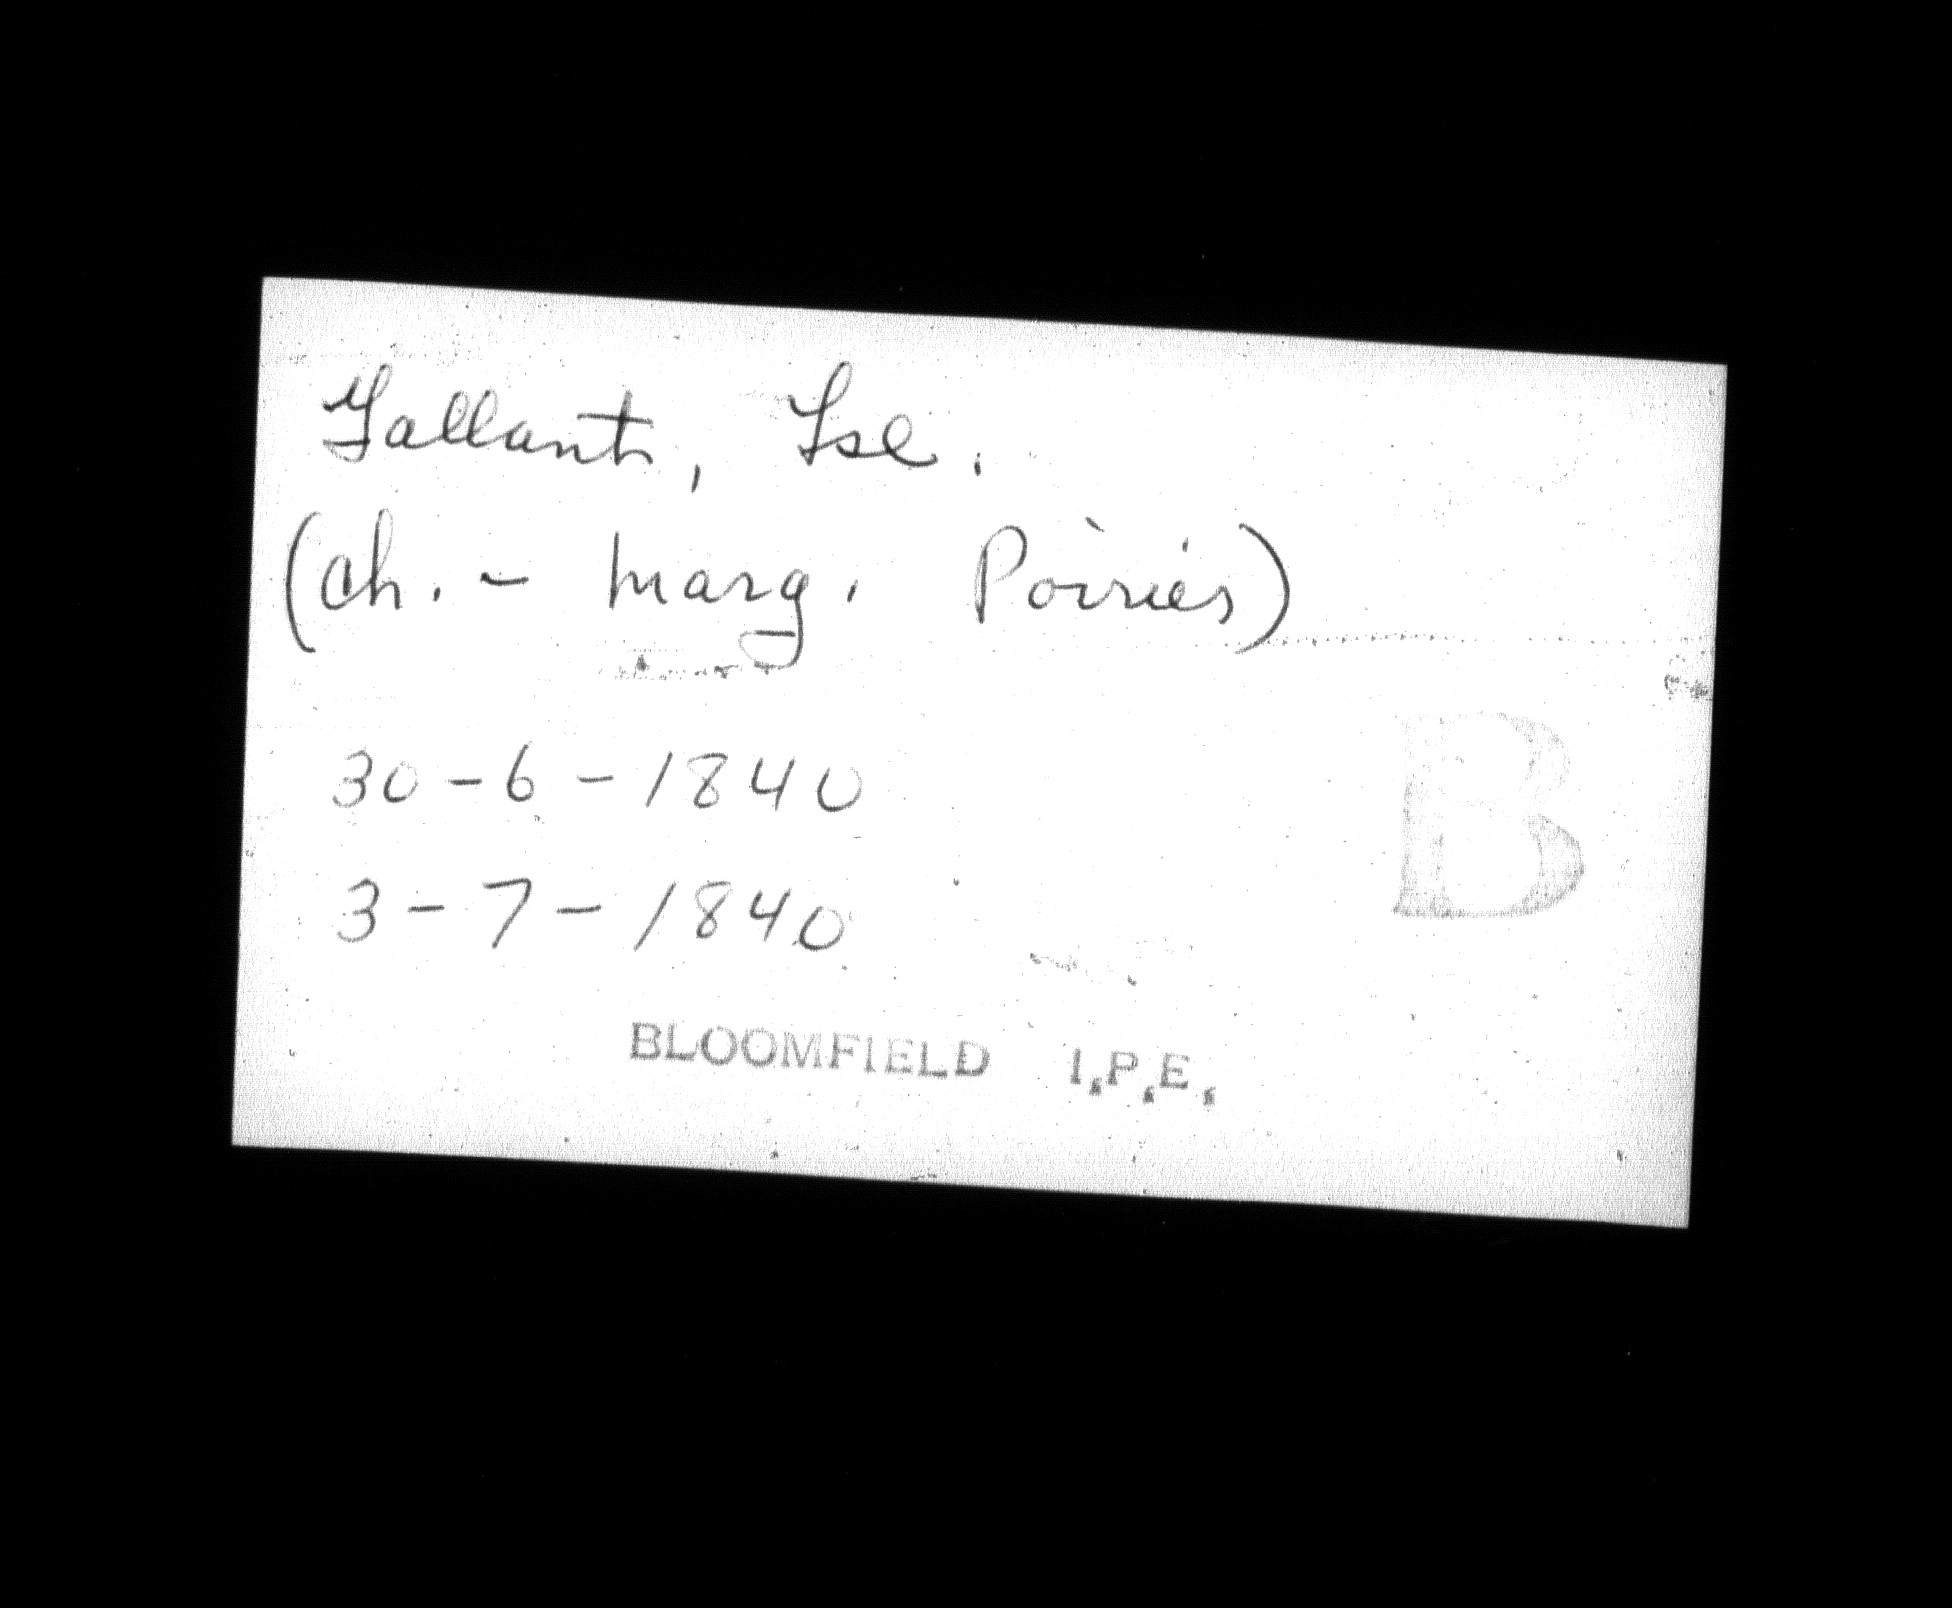 Gallant, Fse.
(ch. - Marg. Poirier)
30-6-1840
3-7-1840
B
BLOOMFIELD I.P.E.